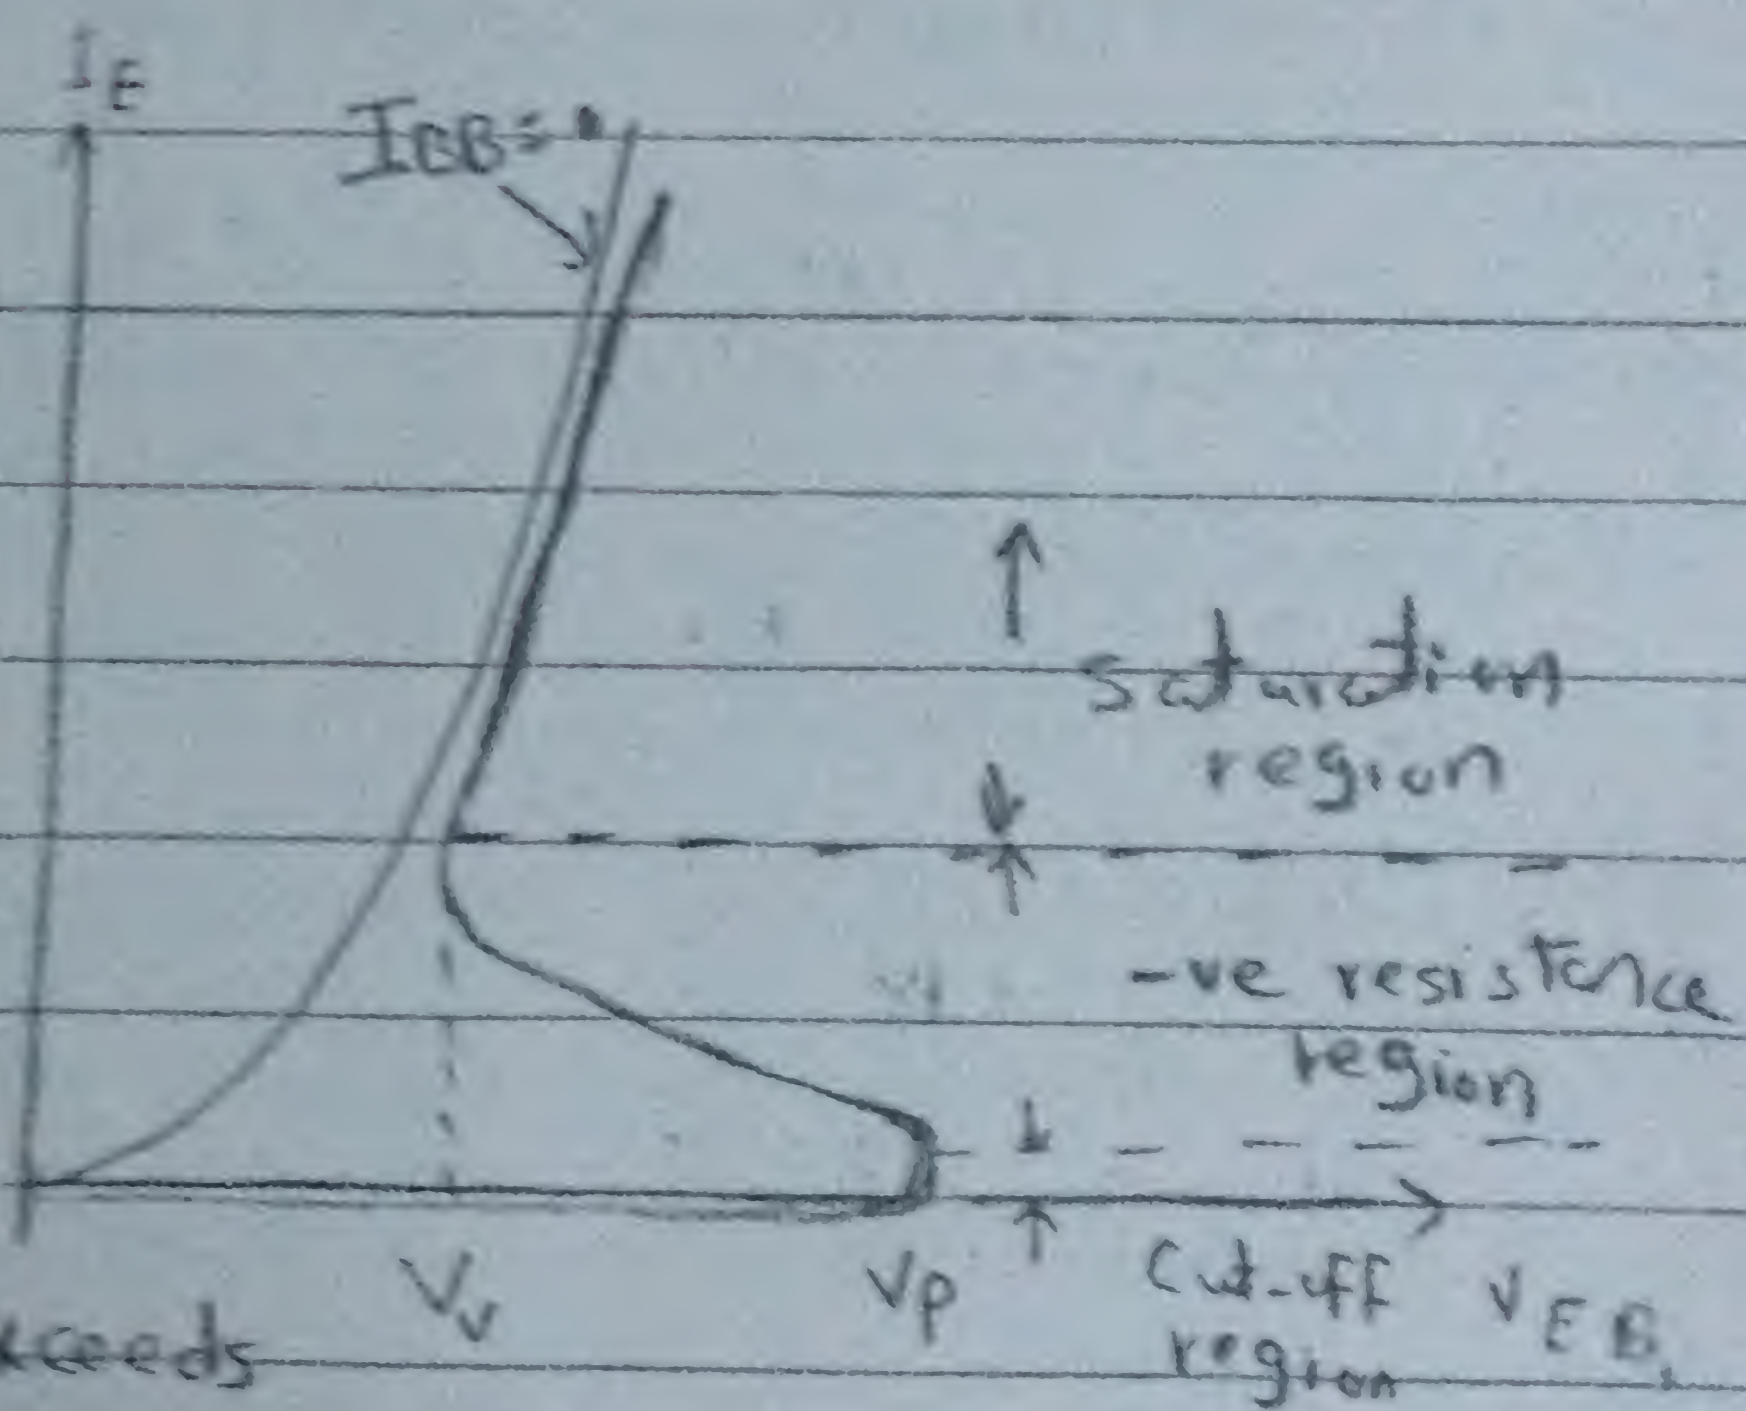 I_E
I_BB =
saturation
region
-ve resistance
region
V_v
V_P
cut-off
region
V_EB
xceeds